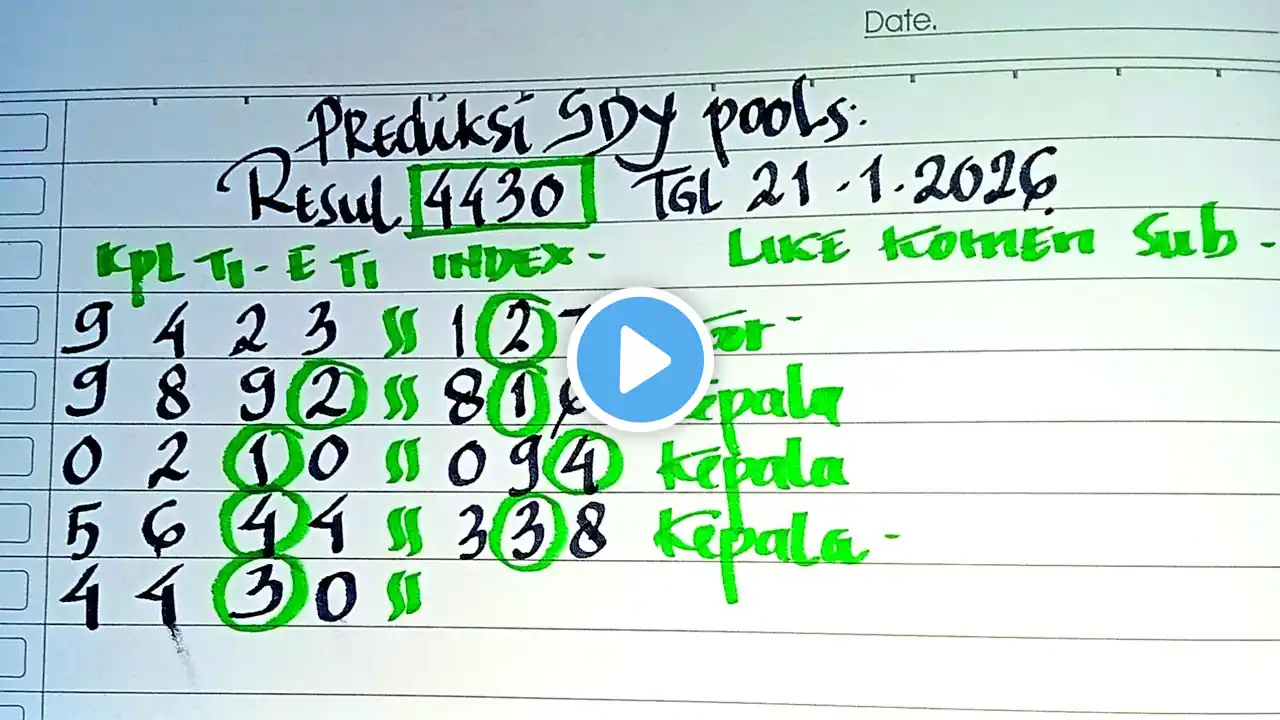 Date.
PREDiKSi SDY pooLs.
RESUL 4430 TGL 21.1.2026
KPL TI - E TI INDEX - LIKE KOMEN Sub -
9 4 2 3 1 2
9 8 9 2 8 1 Kepala
0 2 1 0 0 9 4 Kepala
5 6 4 4 3 3 8 Kepala -
4 4 3 0